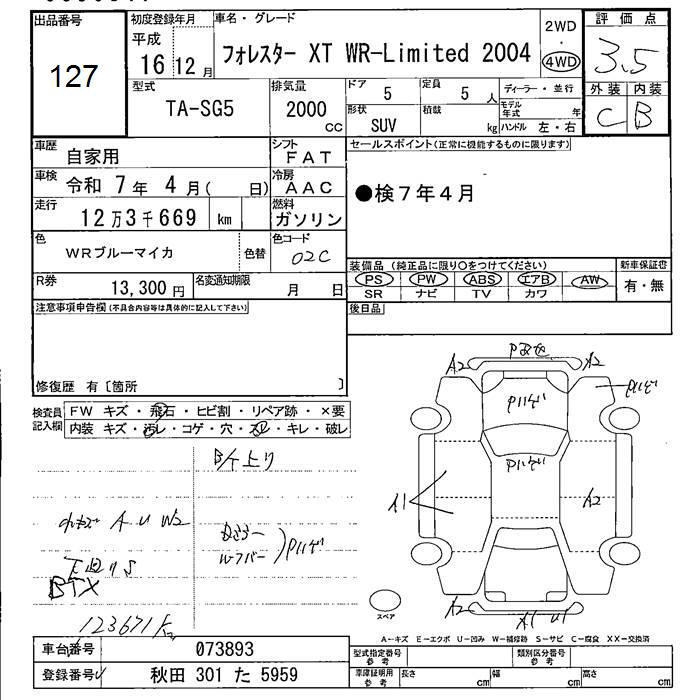 出品番号
127
初度登録年月
平成
16 12 月
車名・グレード
フォレスター XT WR-Limited 2004
2WD
・
4WD
評価点
3.5
外装 内装
C B
型式
TA-SG5
排気量
2000
CC
ドア
5
定員
5 人
形状
SUV
積載
kg
ディーラー・並行
モデル年式 年
ハンドル 左・右
車歴
自家用
シフト
FAT
車検
令和 7 年 4 月( 日)
冷房
AAC
走行
12 万 3 千 669 km
燃料
ガソリン
色
WRブルーマイカ
色替
色コード
02C
R券
13,300 円
名変通知期限
月 日
セールスポイント(正常に機能するものに限ります)
●検7年4月
装備品 (純正品に限り〇をつけてください)
PS PW ABS エアB AW
SR ナビ TV カワ
新車保証書
有・無
後日品
注意事項申告欄(不具合内容等は具体的に記入して下さい)
修復歴 有〔箇所 〕
検査員記入欄
FW キズ・飛石・ヒビ割・リペア跡・×要
内装 キズ・汚レ・コゲ・穴・スレ・キレ・破レ
A U W2
BTX
123671K
A2 A2
A1
A2
A2
スペア
A-キズ E-エクボ U-凹み W-補修跡 S-サビ C-腐食 XX-交換済
車台番号
073893
登録番号
秋田 301 た 5959
型式指定番号
参考
類別区分番号
参考
車庫証明用
参考
長さ cm 幅 cm 高さ cm